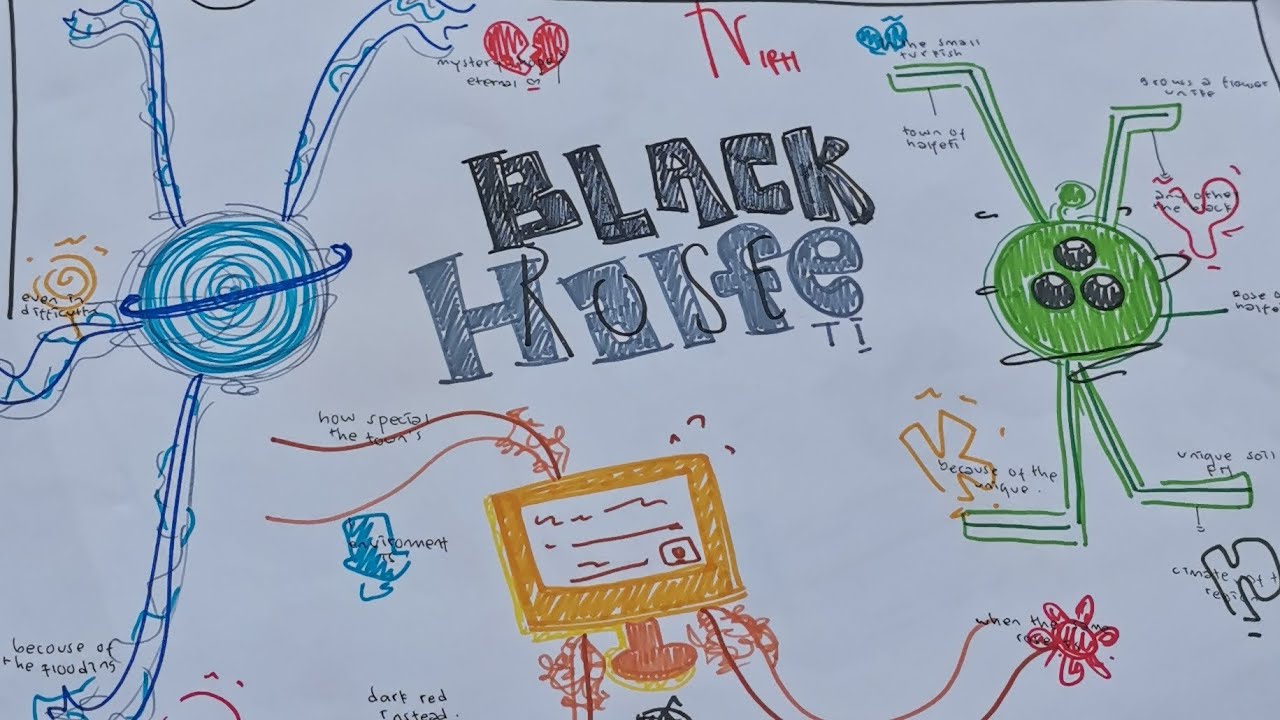 mystery, hope,
eternal
IPH
the small
turkish
Grows a flower
unite
town of
halfeti
BLACK
ROSE
Halfe
TI
and the
the black
Rose of
halfe
even in
difficulty
how special
the town's
because of the
unique.
unique soil
PH
environment
climate of t
region
when the
because of
the flooding
dark red
instead.